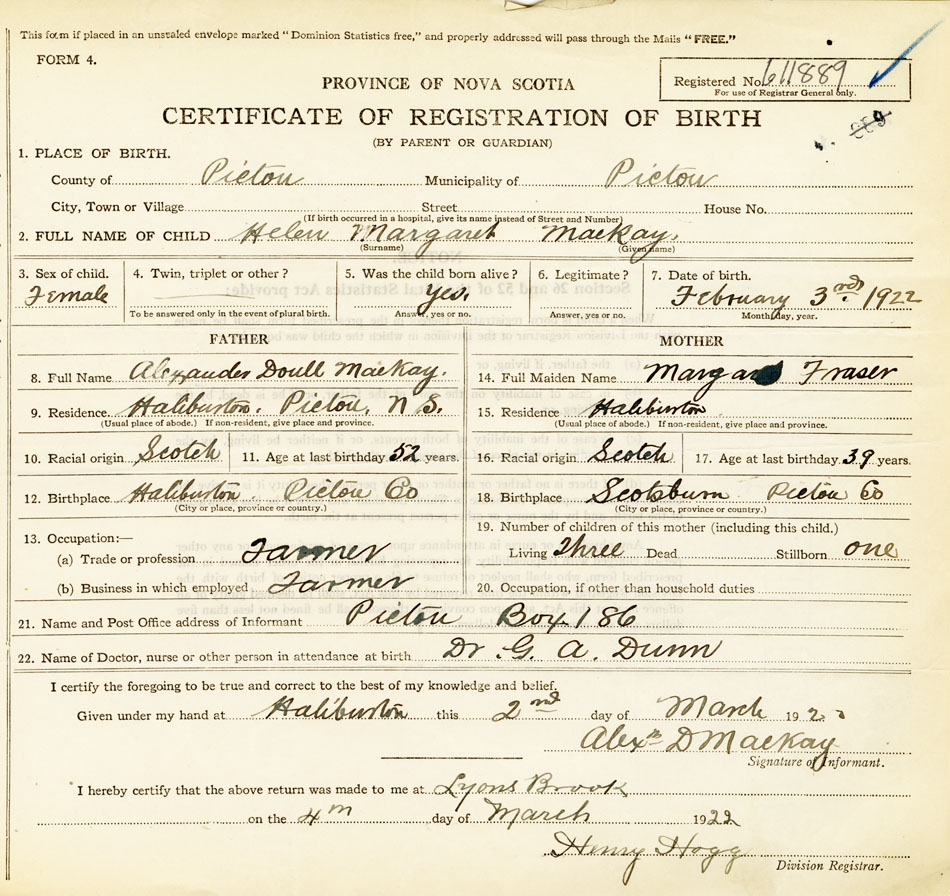 This form if placed in an unsealed envelope marked "Dominion Statistics free," and properly addressed will pass through the Mails "FREE."
FORM 4.
Registered No. 611889
For use of Registrar General only.
PROVINCE OF NOVA SCOTIA
CERTIFICATE OF REGISTRATION OF BIRTH
(BY PARENT OR GUARDIAN)
889
1. PLACE OF BIRTH.
County of Pictou Municipality of Pictou
City, Town or Village Street House No.
(If birth occurred in a hospital, give its name instead of Street and Number)
2. FULL NAME OF CHILD Helen Margaret MacKay.
(Surname) (Given name)
3. Sex of child. 4. Twin, triplet or other? 5. Was the child born alive? 6. Legitimate? 7. Date of birth.
Female Yes. February 3rd. 1922
To be answered only in the event of plural birth. Answer, yes or no. Answer, yes or no. Month, day, year.
FATHER MOTHER
8. Full Name Alexander Doull MacKay. 14. Full Maiden Name Margaret Fraser
9. Residence Haliburton. Pictou, N S. 15. Residence Haliburton
(Usual place of abode.) If non-resident, give place and province. (Usual place of abode.) If non-resident, give place and province.
10. Racial origin Scotch 11. Age at last birthday 52 years. 16. Racial origin Scotch 17. Age at last birthday 39 years.
12. Birthplace Haliburton Pictou Co 18. Birthplace Scotsburn Pictou Co
(City or place, province or country.) (City or place, province or country.)
13. Occupation:— 19. Number of children of this mother (including this child.)
(a) Trade or profession Farmer Living Three Dead Stillborn one
(b) Business in which employed Farmer 20. Occupation, if other than household duties
21. Name and Post Office address of Informant Pictou Box 186
22. Name of Doctor, nurse or other person in attendance at birth Dr. G. A. Dunn
I certify the foregoing to be true and correct to the best of my knowledge and belief.
Given under my hand at Haliburton this 2nd day of March 192
Alexr D MacKay
Signature of Informant.
I hereby certify that the above return was made to me at Lyons Brook
on the 4th day of March 1922
Henry Hogg
Division Registrar.